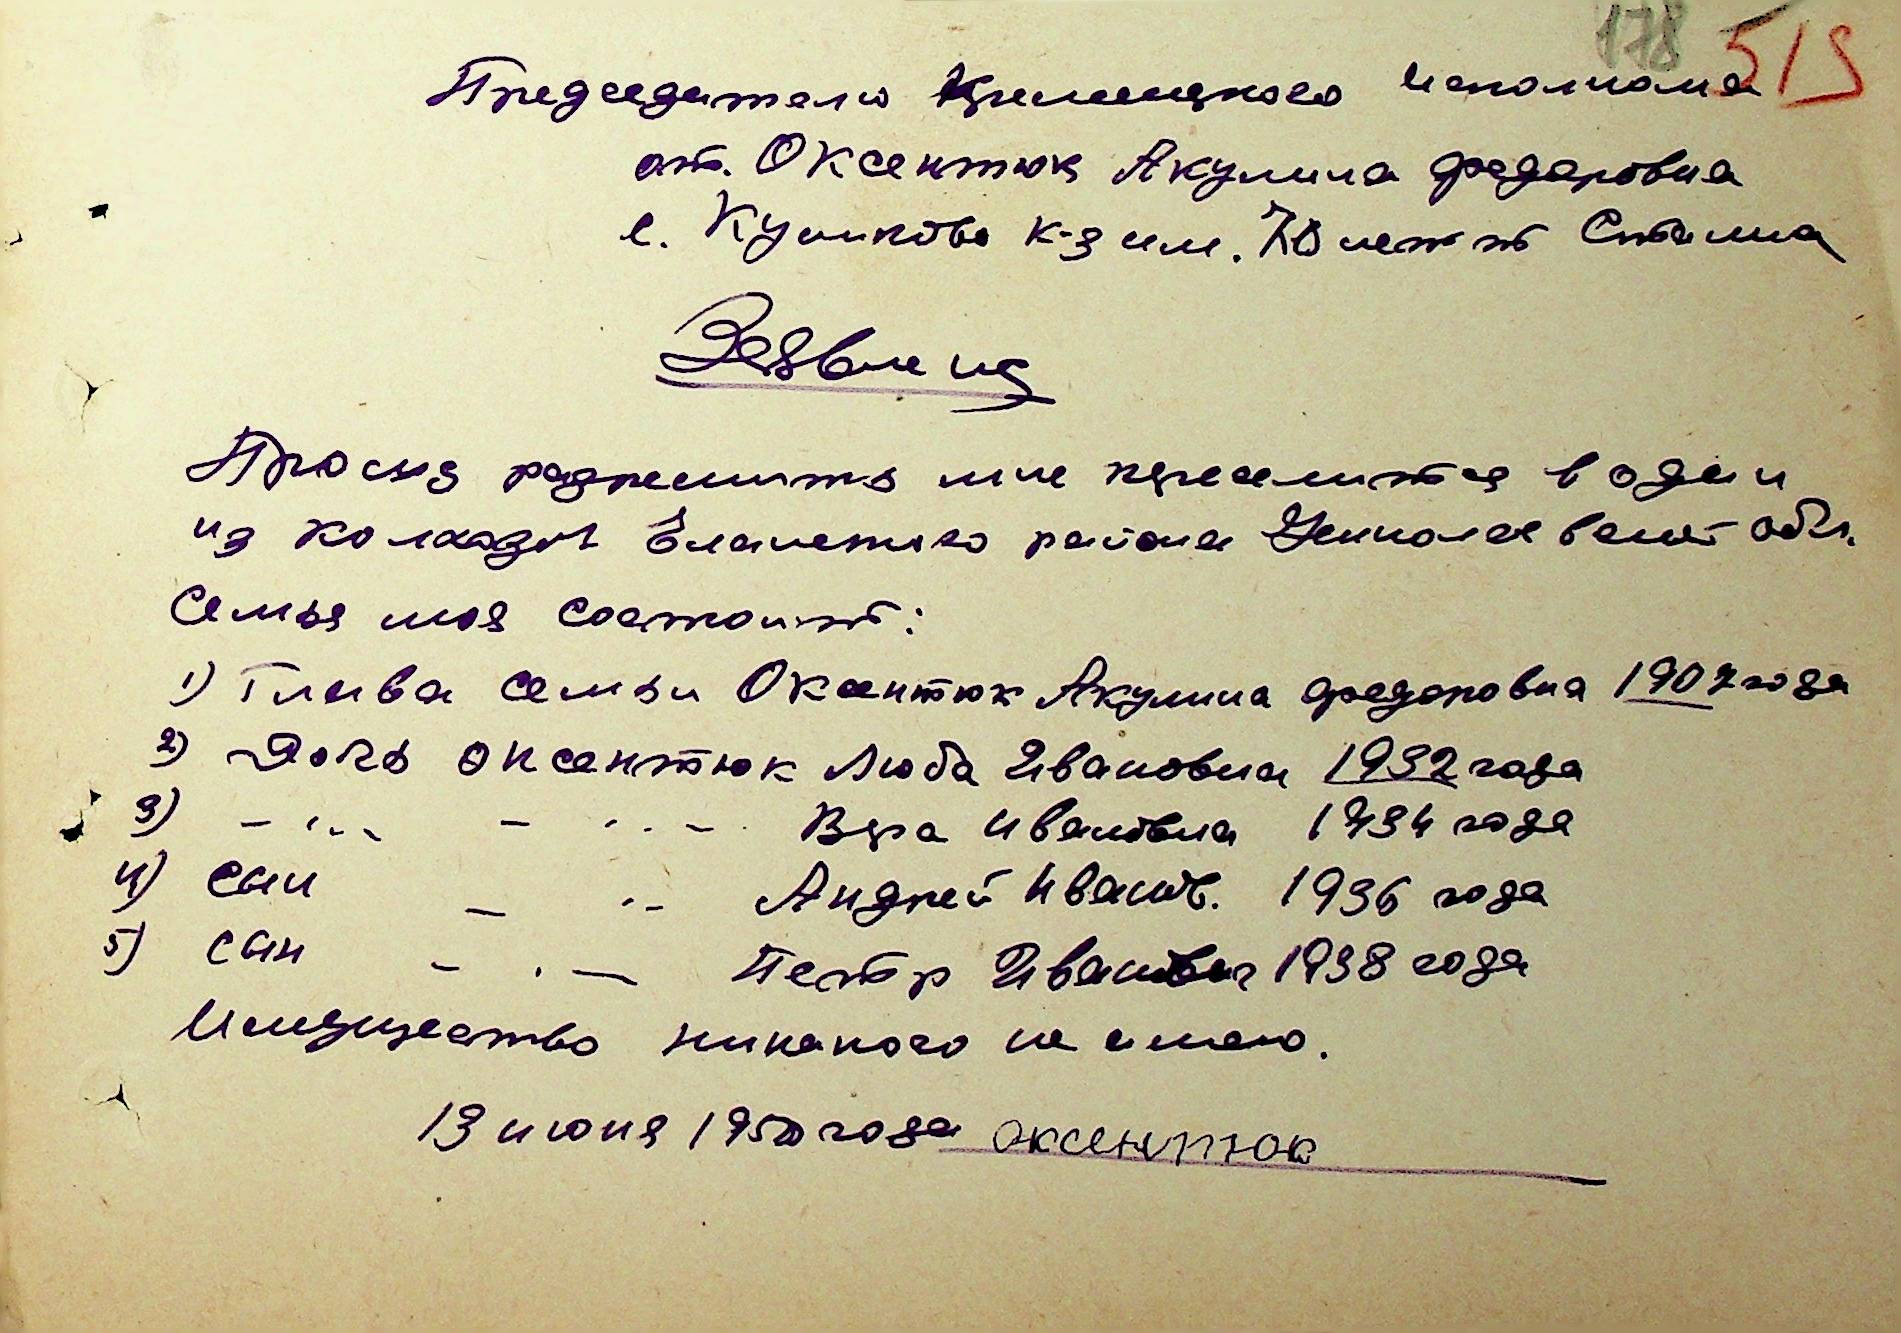 178 515
Председателю Исполкома
от. Оксентюк Акулина Федоровна
с. Куликово к-з им. 70 лет Сталина
Заявление
Прошу разрешить мне переселится в один
из колхозов Еланецкого района Николаевской обл.
Семья моя состоит:
1) Глава семьи Оксентюк Акулина Федоровна 1902 года
2) Дочь Оксентюк Люба Ивановна 1932 года
3) – ˮ – – ˮ – Вера Ивановна 1934 года
4) сын – ˮ – Андрей Иванов. 1936 года
5) сын – ˮ – Петр Иванович 1938 года
Имущество никакого не имею.
13 июня 1950 года Оксентюк